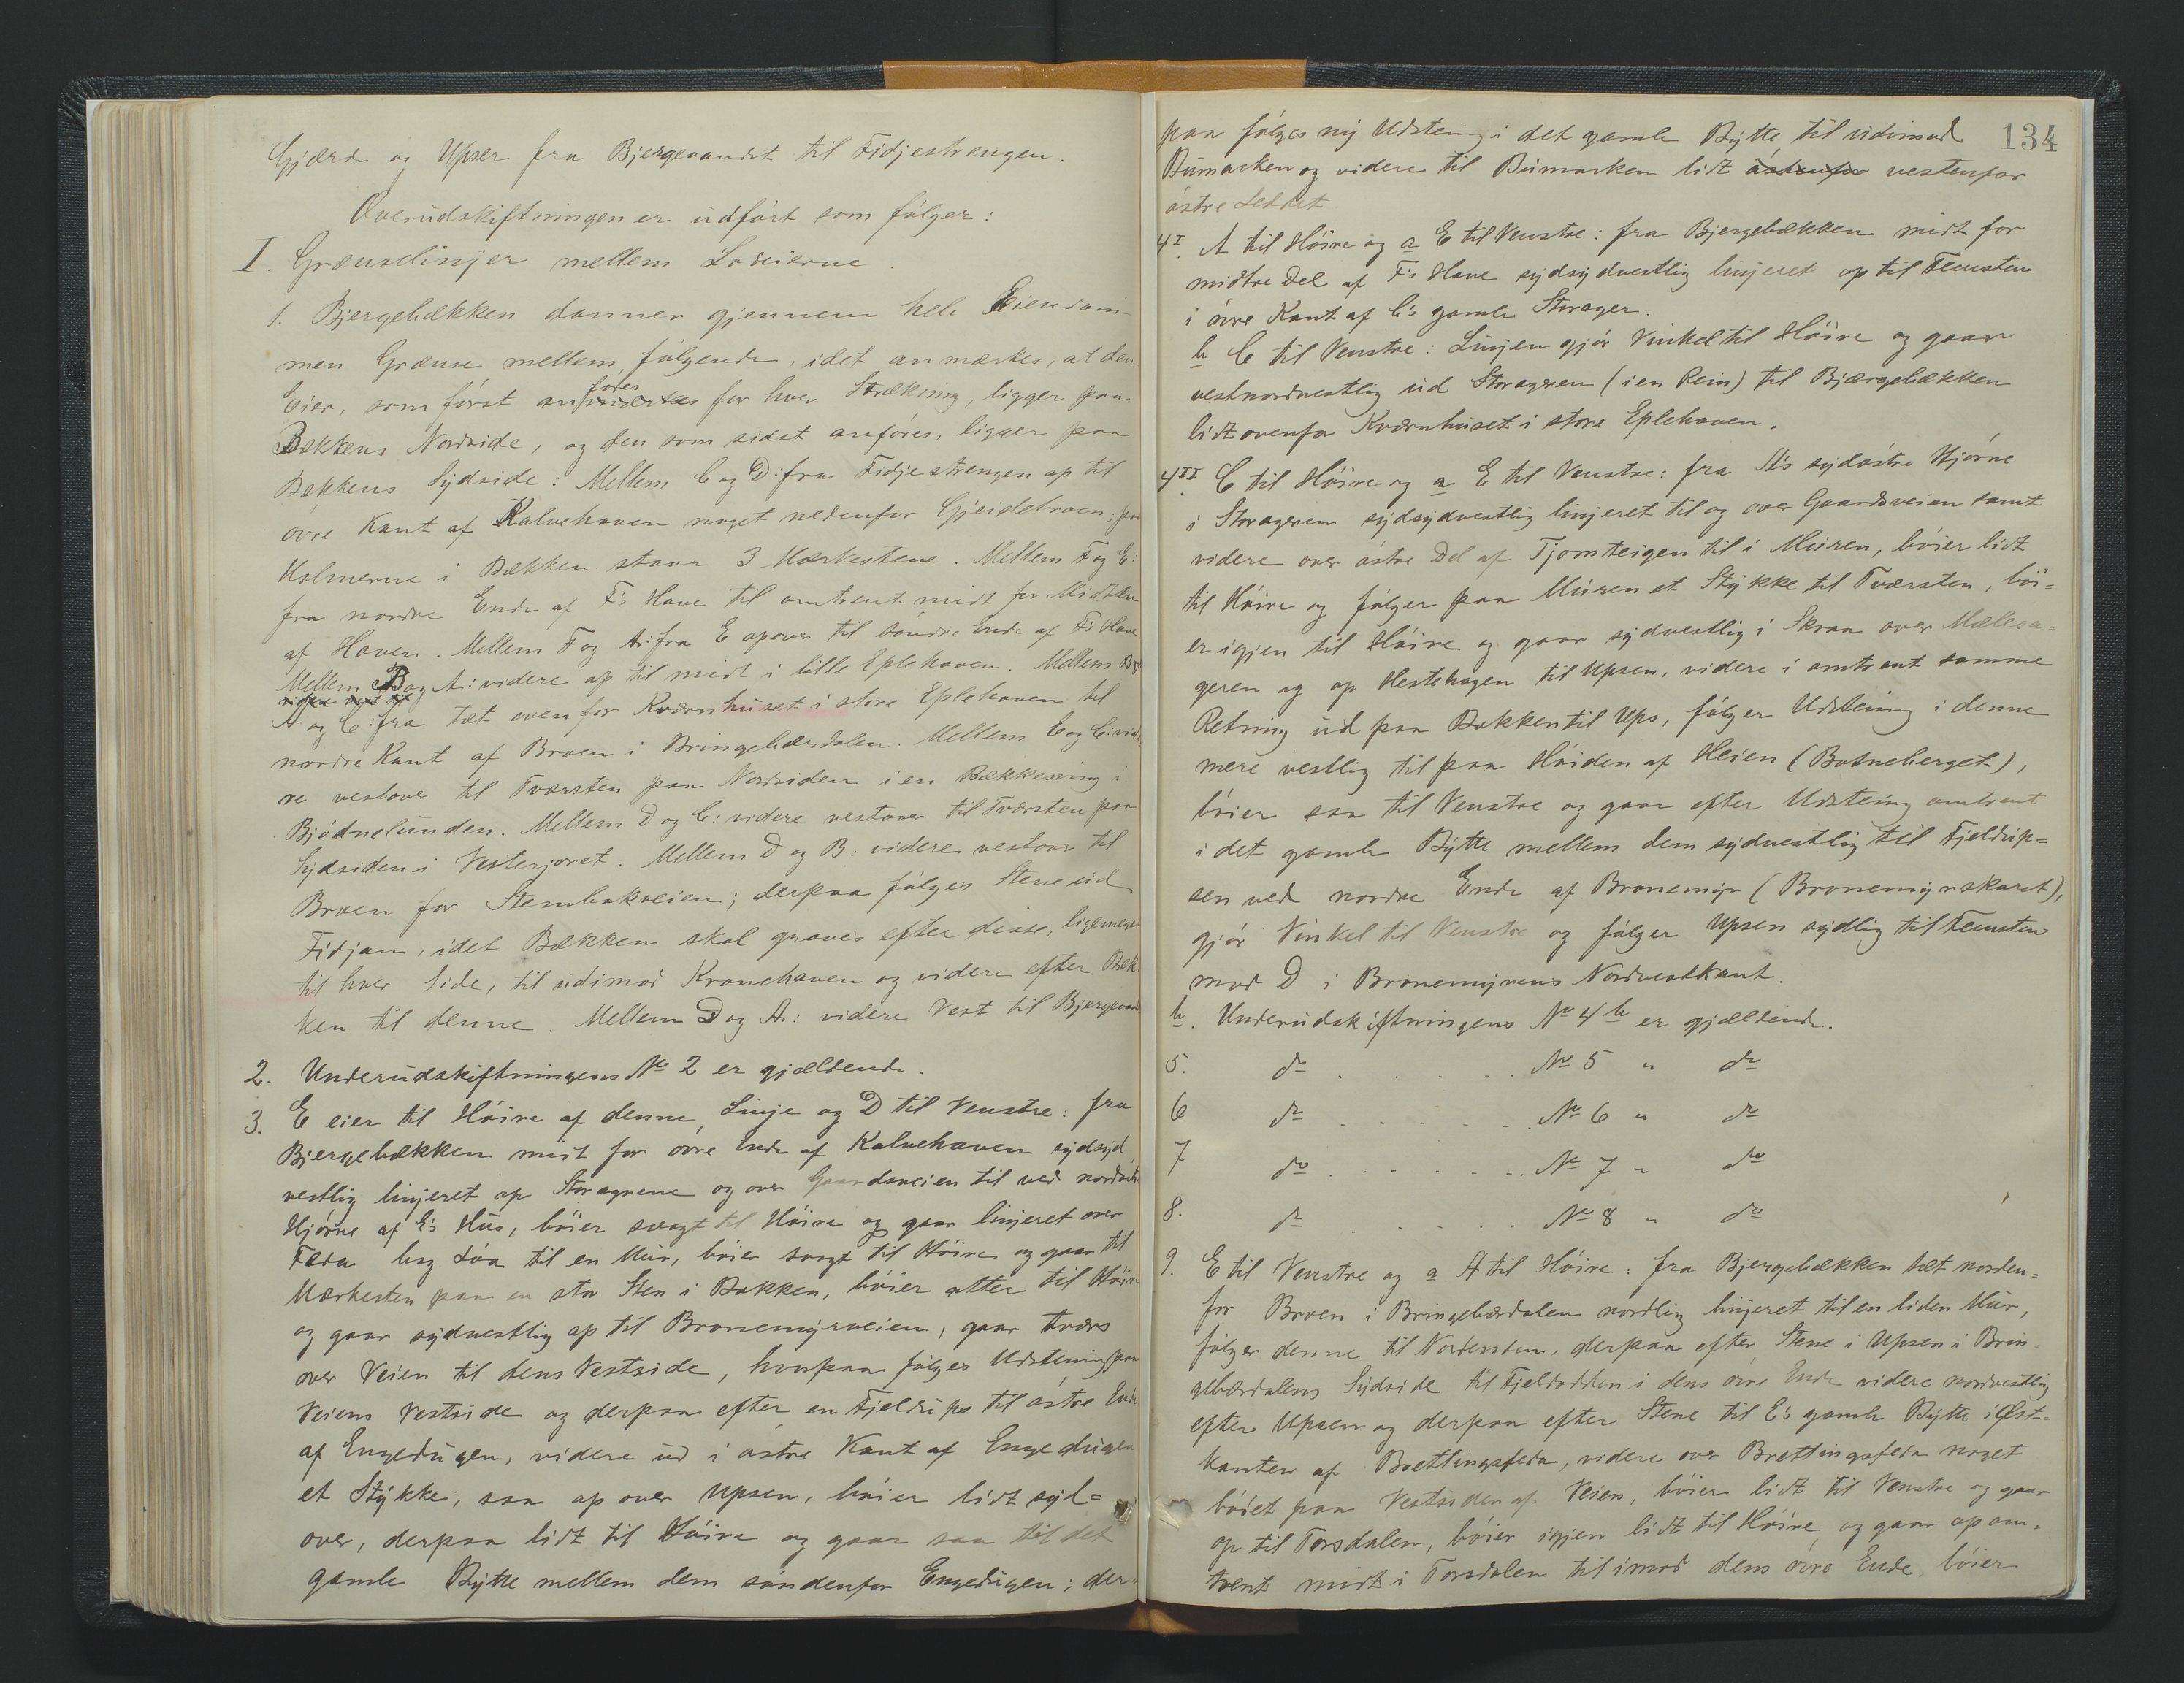 Gjærde og Upser fra Bjergevandet til Fidjestrengen.
Overudskiftningen er udført som følger:
I. Grænselinjer mellem Lodeierne.
1. Bjergebækken danner gjennem hele Eiendom-
men Grænse mellem følgende, idet anmærkes, at den
føres
Eier, som først an for hver Strækning, ligger paa
Bækkens Nordside, og den som sidst anføres, ligger paa
Bækkens Sydside: Mellem C og D: fra Fidjestrengen op til
øvre Kant af Kalvehaven noget nedenfor Gjeidebroen: paa
Holmerne i Bækken staar 3 Mærkestene. Mellem F og E:
fra nordre Ende af F's Have til omtrent midt for Midten
af Haven. Mellem F og A: fra E opover til søndre Ende af F's Have
Mellem B og A: videre op til midt i lille Eplehaven. Mellem B og
A og C: fra tæt ovenfor Kværnhuset i store Eplehaven til
nordre Kant af Broen i Bringebærdalen. Mellem E og C: vide
re vestover til Tværsten paa Nordsiden i en Bækkesving i
Bjødnelunden. Mellem D og C: videre vestover til Tværsten paa
Sydsiden i Vesterjoret. Mellem D og B: videre vestover til
Broen for Stembakveien; derpaa følges Stene ud
Fidjan, idet Bækken skal graves efter disse, ligemeget
til hver Side, til udimod Kronehaven og videre efter Bæk-
ken til denne. Mellem D og A: videre Vest til Bjergevand
2. Underudskiftningens No 2 er gjældende.
3. E eier til Høire af denne Linje og D til Venstre: fra
Bjergebækken midt for øvre Ende af Kalvehaven sydsyd
vestlig linjeret op Storagrene og over Gaardsveien til ved nordvestre
Hjørne af E's Hus, bøier svagt til Høire og gaar linjeret over
Feda bag Løa til en Mur, bøier svagt til Høire og gaar til
Mærkesten paa en stor Sten i Bakken, bøier atter til Høire
og gaar sydvestlig op til Bronemyrveien, gaar tværs
over Veien til dens Vestside, hvorpaa følges Udstening paa
Veiens Vestside og derpaa efter en Fjeldups til østre Ende
af Engedugen, videre ud i østre Kant af Engedugen
et Stykke, saa op over Upsen, bøier lidt syd=
over, derpaa lidt til Høire og gaar saa til det
gamle Bytte mellem dem søndenfor Engedugen; der-
134
paa følges ny Udstening i det gamle Bytte til udimod
Bumarken og videre til Bumarken lidt østenfor vestenfor
østre Ledet.
4I. A til Høire og a E til Venstre: fra Bjergebækken midt for
midtre Del af F's Have sydsydvestlig linjeret op til Femsten
i øvre Kant af C's gamle Storager.
b C til Venstre: Linjen gjør Vinkel til Høire og gaar
vestnordvestlig ud Storageren (i en Rein) til Bjærgebækken
lidt ovenfor Kværnhuset i store Eplehaven.
4II. C til Høire og a E til Venstre: fra A's sydøstre Hjørne
i Storageren sydsydvestlig linjeret til og over Gaardsveien samt
videre over østre Del af Tjomteigen til i Muren, bøier lidt
til Høire og følger paa Muren et Stykke til Tværsten, bøi=
er igjen til Høire og gaar sydvestlig i Skraa over Mælea=
geren og op Hestehagen til Upsen, videre i omtrent samme
Retning ud paa Bakken til Ups, følger Udstening i denne
mere vestlig til paa Høiden af Heien (Botneberget),
bøier saa til Venstre og gaar efter Udstening omtrent
i det gamle Bytte mellem dem sydvestlig til Fjeldup=
sen ved nordre Ende af Bronemyr (Bronemyrskaret),
gjør Vinkel til Venstre og følger Upsen sydlig til Femsten
mod D i Bronemyrens Nordvestkant.
b. Underudskiftningens No 4b er gjældende.
5. do . . . . . No 5 " do
6 do . . . . . No 6 " do
7 do . . . . . No 7 " do
8. do . . . . . No 8 " do
9. E til Venstre og a A til Høire: fra Bjergebækken tæt norden=
for Broen i Bringebærdalen nordlig linjeret til en liden Mur,
følger denne til Nordenden, derpaa efter Stene i Upsen i Brin-
gebærdalens Sydside til Fjeldodden i dens øvre Ende videre nordvestlig
efter Upsen og derpaa efter Stene til E's gamle Bytte i Øst=
kanten af Brettingsfeda, videre over Brettingsfeda noget
bøiet paa Vestsiden af Veien, bøier lidt til Venstre og gaar
op til Torsdalen, bøier igjen lidt til Høire og gaar op om=
trent midt i Torsdalen til imod dens øvre Ende bøier